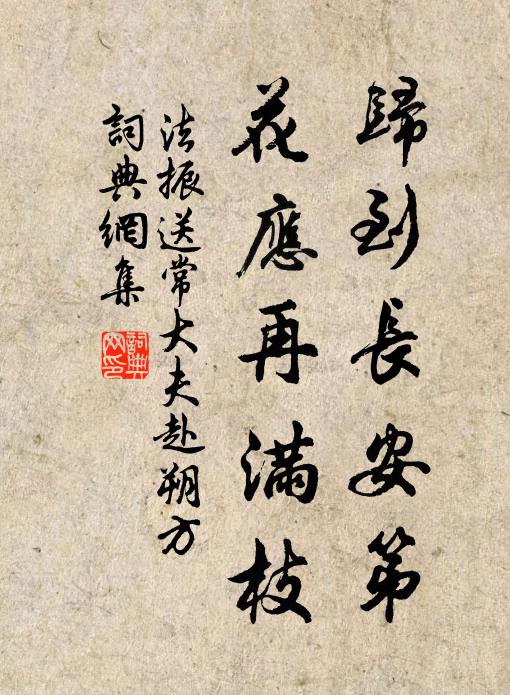 歸到長安第
花應再滿枝
法振送常大夫赴朔方
詞典網集
詞典
网印